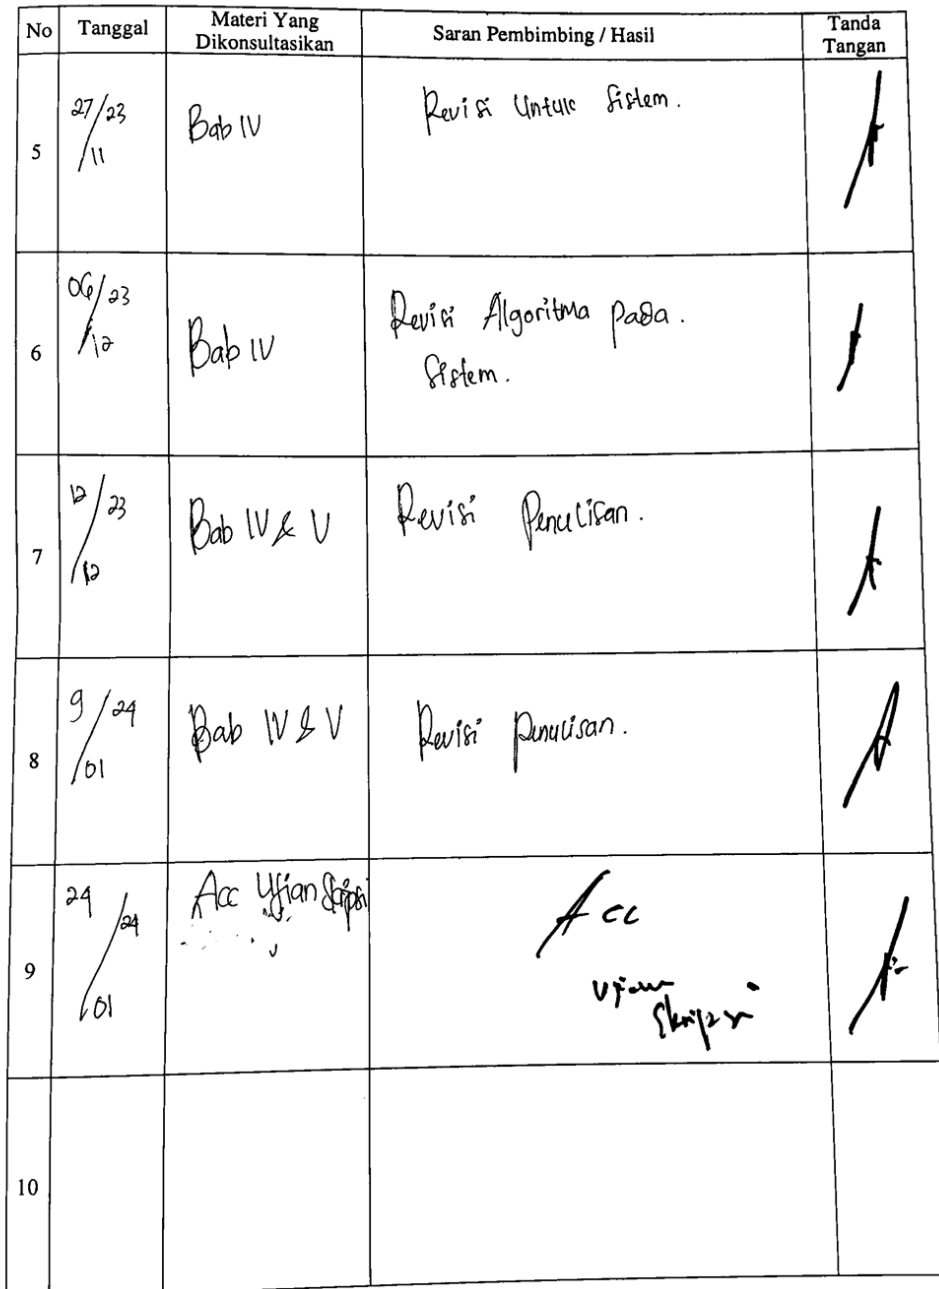 No Tanggal Materi Yang Dikonsultasikan Saran Pembimbing / Hasil Tanda Tangan
5 27/23 11 Bab IV Revisi Untuk Sistem.
6 06/23 12 Bab IV Revisi Algoritma pada.
Sistem.
7 12/23 12 Bab IV & V Revisi Penulisan.
8 9/24 01 Bab IV & V Revisi penulisan.
9 24/24 01 Acc Ujian Skripsi Acc
Ujian
Skripsi
10